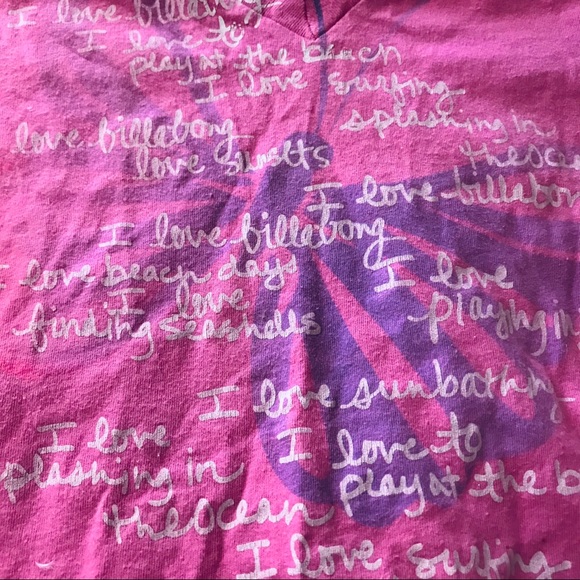 I love billabong
I love to
play at the beach
I love surfing
love billabong
splashing in
love sunsets
the ocean
I love billabon
I love billabong
I love beach days
I love
I love
finding seashells
playing in
I love sunbathing
I love
I love to
plashing in
play at the b
the ocean
I love surfing